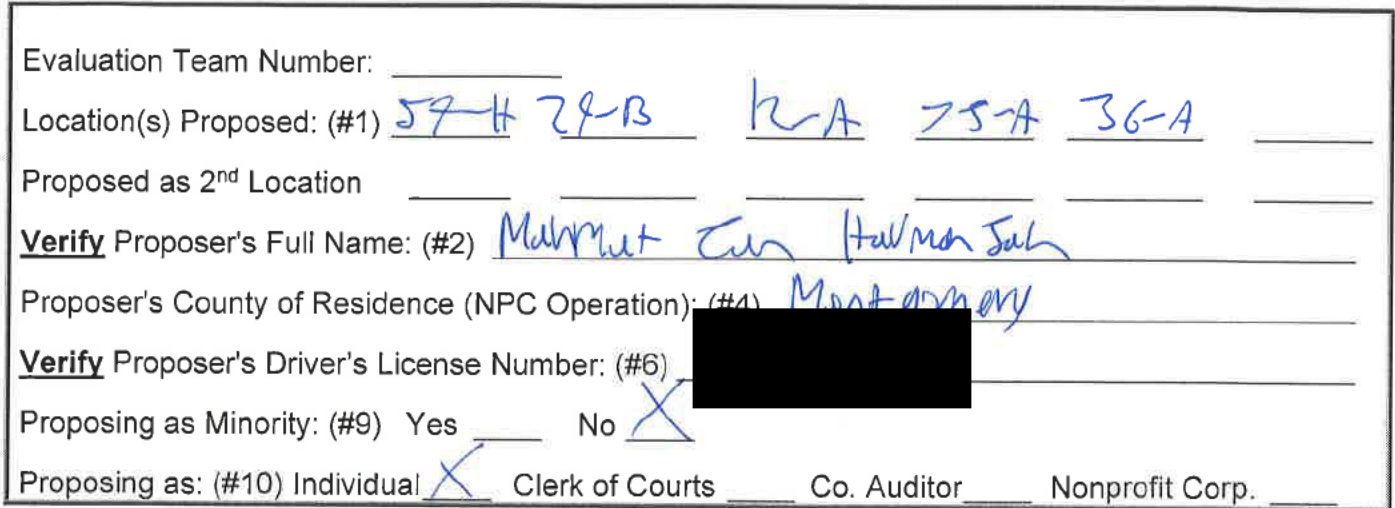 Evaluation Team Number:
Location(s) Proposed: (#1) 57-H 29-B 12-A 75-A 36-A
Proposed as 2nd Location
Verify Proposer's Full Name: (#2) Mahmut Can
Proposer's County of Residence (NPC Operation): (#4) Montgomery
Verify Proposer's Driver's License Number: (#6)
Proposing as Minority: (#9) Yes No X
Proposing as: (#10) Individual X Clerk of Courts Co. Auditor Nonprofit Corp.